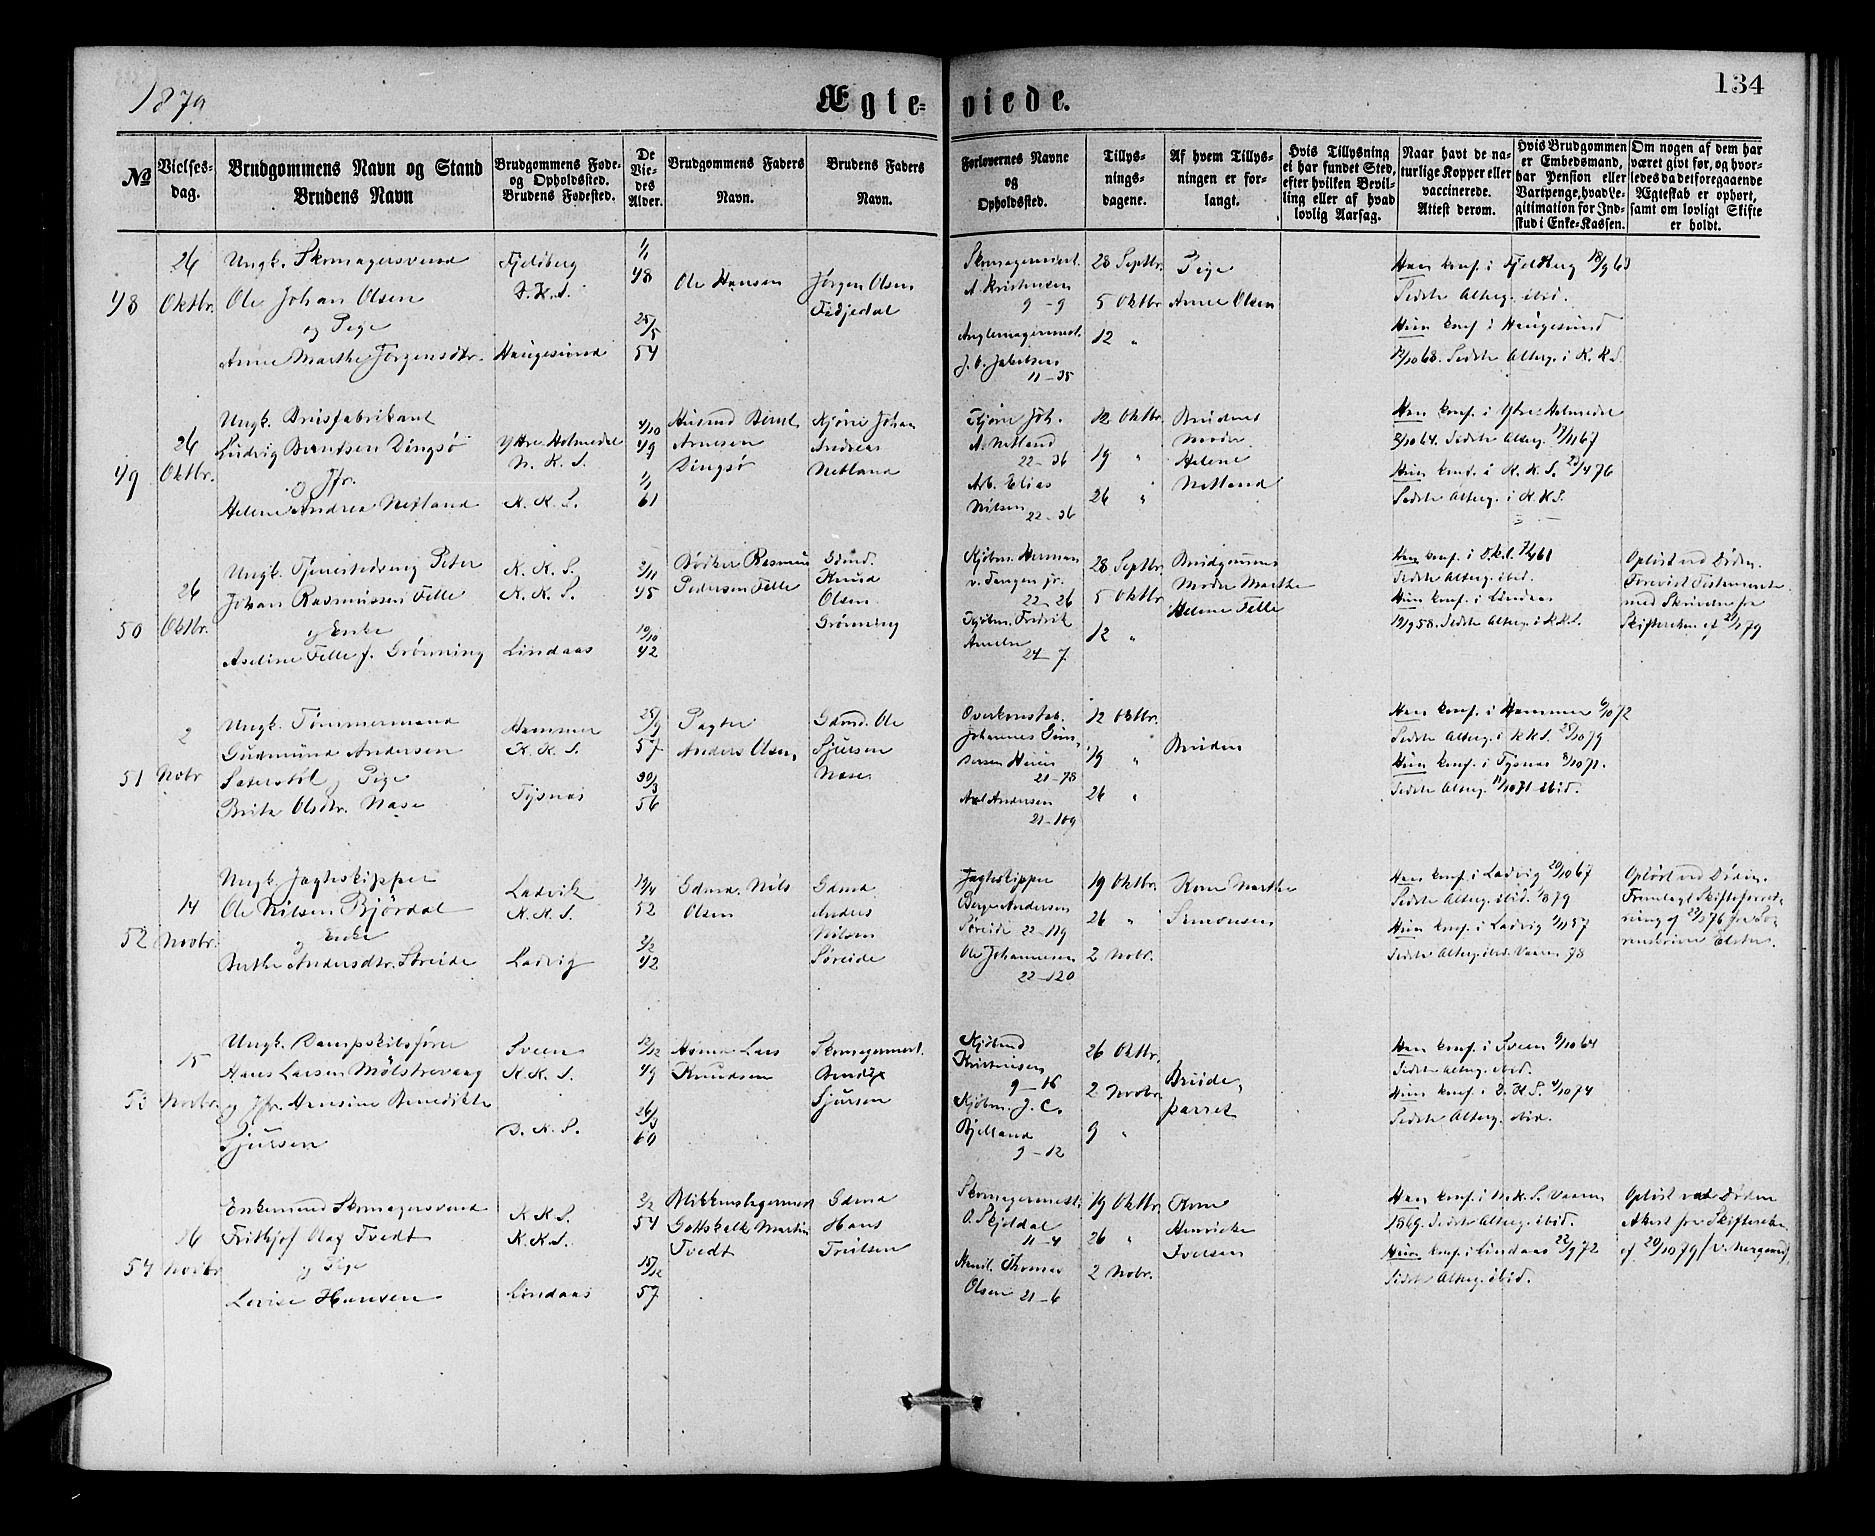 1879
Ægteviede.
134
№
Vielses-
dag.
Brudgommens Navn og Stand
Brudens Navn
Brudgommens Føde-
og Opholdssted.
Brudens Fødested.
De
Vie-
des
Alder.
Brudgommens Faders
Navn.
Brudens Faders
Navn.
Forlovernes Navne
og
Opholdssted.
Tillys-
nings-
dagene.
Af hvem Tillys-
ningen er for-
langt.
Hvis Tillysning
ei har fundet Sted,
efter hvilken Bevil-
ling eller af hvad
lovlig Aarsag.
Naar havt de na-
turlige Kopper eller
vaccinerede.
Attest derom.
Hvis Brudgommen
er Embedsmand,
har Pension eller
Vartpenge, hvad Le-
gitimation for Ind-
skud i Enke-Kassen.
Om nogen af dem har
været givt før, og hvor-
ledes da det foregaaende
Ægteskab er ophørt,
samt om lovligt Skifte
er holdt.
48
26
Oktbr.
Ungk. Skomagersvend
Ole Johan Olsen
og Pige
Anne Marthe Jørgensdtr.
Fjeldberg
D.K.S.
Haugesund
1/1
48
25/5
54
Ole Hansen
Jørgen Olsen
Fedjedal
Skomagermest.
A. Kristensen
9-9
J. O. Jakobsen
11-35
28 Septbr.
5 Oktbr.
12 "
Pige
Anne Olsen
Han konf. i Fjeldberg 18/9 63
Sidste Alterg. ibid.
Hun konf. i Haugesund
/10 68. Sidste Alterg. i K.K.S.
49
26
Oktbr.
Ungk. Brusfabrikant
Ludvig Berntsen Dingsø
og Jfr.
Helene Andrea Netland
Yttre Holmedal
N.K.S.
K.K.S.
4/10
49
1/1
61
Husmd Bernt
Arnesen
Dingsø
Kjøre Johan
Andreas
Netland
Kjøre Joh.
A. Netland
22-36
Arb. Elias
Nilsen
22-36
12 Oktbr.
19 "
26 "
Brudens
Moder
Helene
Netland
Han konf. i Ytre Holmedal
/10 64. Sidste Alterg. 17/11 67
Hun konf. i K.K.S. 23/4 76
Sidste Alterg. i K.K.S.
50
26
Oktbr.
Ungk. Tjenestedreng Peter
Johan Rasmussen Felle
og Enke
Aseline Felle f. Grønning
K.K.S.
K.K.S.
Lindaas
2/11
45
10/10
42
Bødker Rasmus
Pedersen Felle
Gdmd.
Knud
Olsen
Grønning
Kjøbm. Herman
v. Tangen jr.
22-26
Kjøbm. Fredrik
24-7
28 Septbr.
5 Oktbr.
12 "
Brudgommens
Moder Marthe
Helene Felle
Han konf. i D.K.S. 7/4 61
Sidste Alterg. ibid.
Hun konf. i Lindaas
19/9 58. Sidste Alterg. i K.K.S.
Opløst ved Døden.
Forevist Testamente
med Skrivelse fra
Skifteretten
51
2
Novbr.
Ungk. Tømmermand
Gudmund Andersen
Sæterstøl og Pige
Brita Olsdtr. Nase
Hammer
K.K.S.
Tysnæs
25/9
57
30/3
56
Pagter
Anders Olsen
Gdmd. Ole
Sjursen
Nase
Overkonstab.
Johannes Gun-
21-78
Axel Andersen
21-109
12 Oktbr.
19 "
26 "
Bruden
Han konf. i Hammer 6/10 72
Sidste Alterg. i K.K.S. 25/10 79
Hun konf. i Tysnæs 8/10 71.
Sidste Alterg. 11/10 71 ibid.
52
14
Novbr.
Ungk. Jagteskipper
Ole Nilsen Bjørdal
og Enke
Berthe Andersdtr. Søreide
Ladvik
K.K.S.
Ladvig
19/4
52
2/2
42
Gdmd. Nils
Olsen
Gdmd
Anders
Nilsen
Søreide
Jagteskipper
Berge Andersen
Søreide 22-119
Ole Johannesen
22-120
19 Oktbr.
26 "
2 Novbr.
Kone Marthe
Simonsen
Han konf. i Ladvig 20/10 67
Sidste Alterg. ibid. 1/8 79
Hun konf. i Ladvig 1/11 57
Sidste Alterg. ibid. Vaaren 78
Opløst ved Døden.
Fremlagt Skifteforret-
ning af 22/1 76 fra So-
renskriver Elster.
53
15
Novbr.
Ungk. Dampskibsfører
Hans Larsen Mølstrevaag
og Jfr. Hansine Benedikte
Sjursen
Sveen
K.K.S.
D.K.S.
12/12
49
26/3
60
Lars
Knudsen
Skomagermest.
Bendix
Sjursen
Kjøbmd
Kristensen
9-16
Kjøbm. J. C.
Bjelland
9-12
26 Oktbr.
2 Novbr.
9 "
Brude-
parret
Han konf. i Sveen 9/10 64
Sidste Alterg. ibid.
Hun konf. i D.K.S. 4/10 74
Sidste Alterg. ibid.
54
16
Novbr
Enkemand Skomagersvend
Frithjof Olaf Tvedt
og Pige
Lovise Hansen
K.K.S.
K.K.S.
Lindaas
2/2
54
15/12
57
Blikkenslagermest
Gottskalk Martin
Tvedt
Gdmd
Hans
Truelsen
Skomagermest.
O. Skjoldal
11-4
Thomas
Olsen 21-6
19 Oktbr.
26 "
2 Novbr.
Kone
Henrikke
Iversen
Han konf. i N.K.S. Vaaren
1869. Sidste Alterg. ibid.
Hun konf. i Lindaas 22/9 72
Sidste Alterg. ibid.
Opløst ved Døden
Attest fra Skifteretten
af 20/10 79